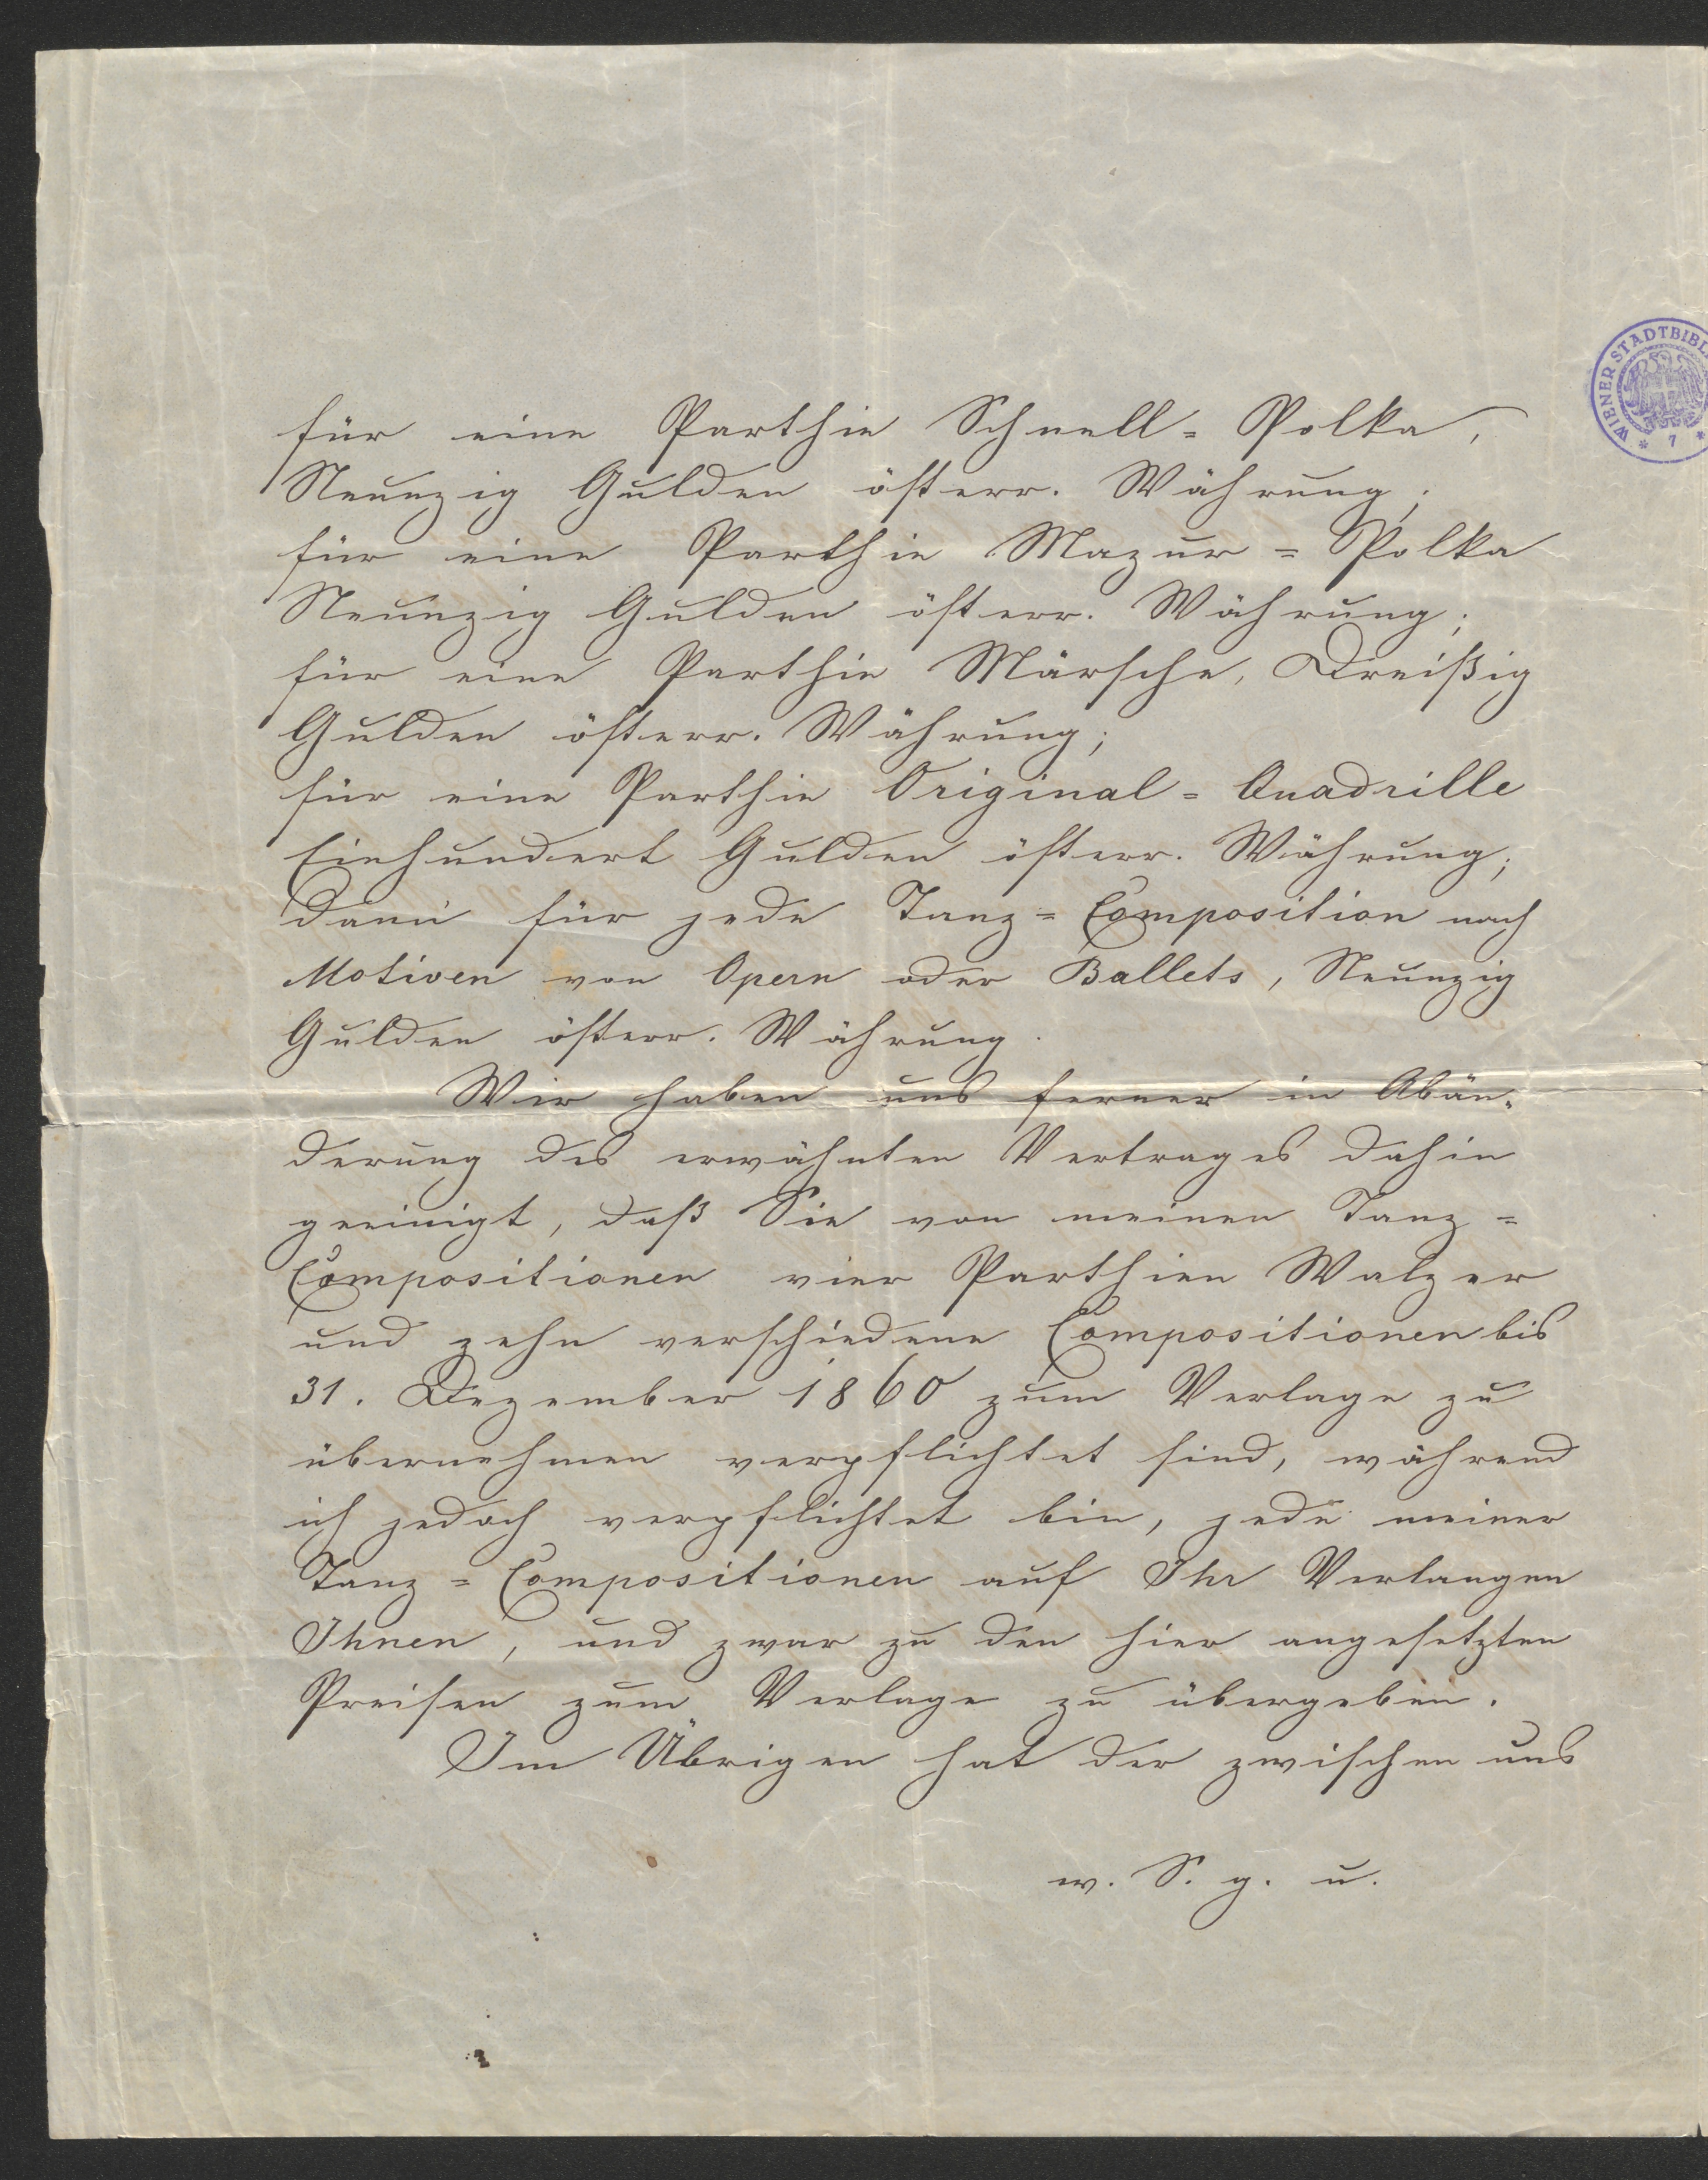 für eine Parthie Schnell=Polka,
Neunzig Gulden österr. Währung;
für eine Parthie Mazur=Polka
Neunzig Gulden österr. Währung;
für eine Parthie Märsche, Dreißig
Gulden österr. Währung;
für eine Parthie Original=Quadrille
Einhundert Gulden österr. Währung;
dann für jede Tanz=Composition nach
Motiven von Opern oder Ballets, Neunzig
Gulden österr. Währung.
Wir haben uns ferner in Abän=
derung des erwähnten Vertrages dahin
geeinigt, daß Sie von meinen Tanz=
Compositionen vier Parthien Walzer
und zehn verschiedene Compositionen bis
31. Dezember 1860 zum Verlage zu
übernehmen verpflichtet sind, während
ich jedoch verpflichtet bin, jede meiner
Tanz=Compositionen auf Ihr Verlangen
Ihnen, und zwar zu den hier angesetzten
Preisen zum Verlage zu übergeben.
Im Übrigen hat der zwischen uns
w. S. g. u.
WIENER STADTBIBL
* 7 *